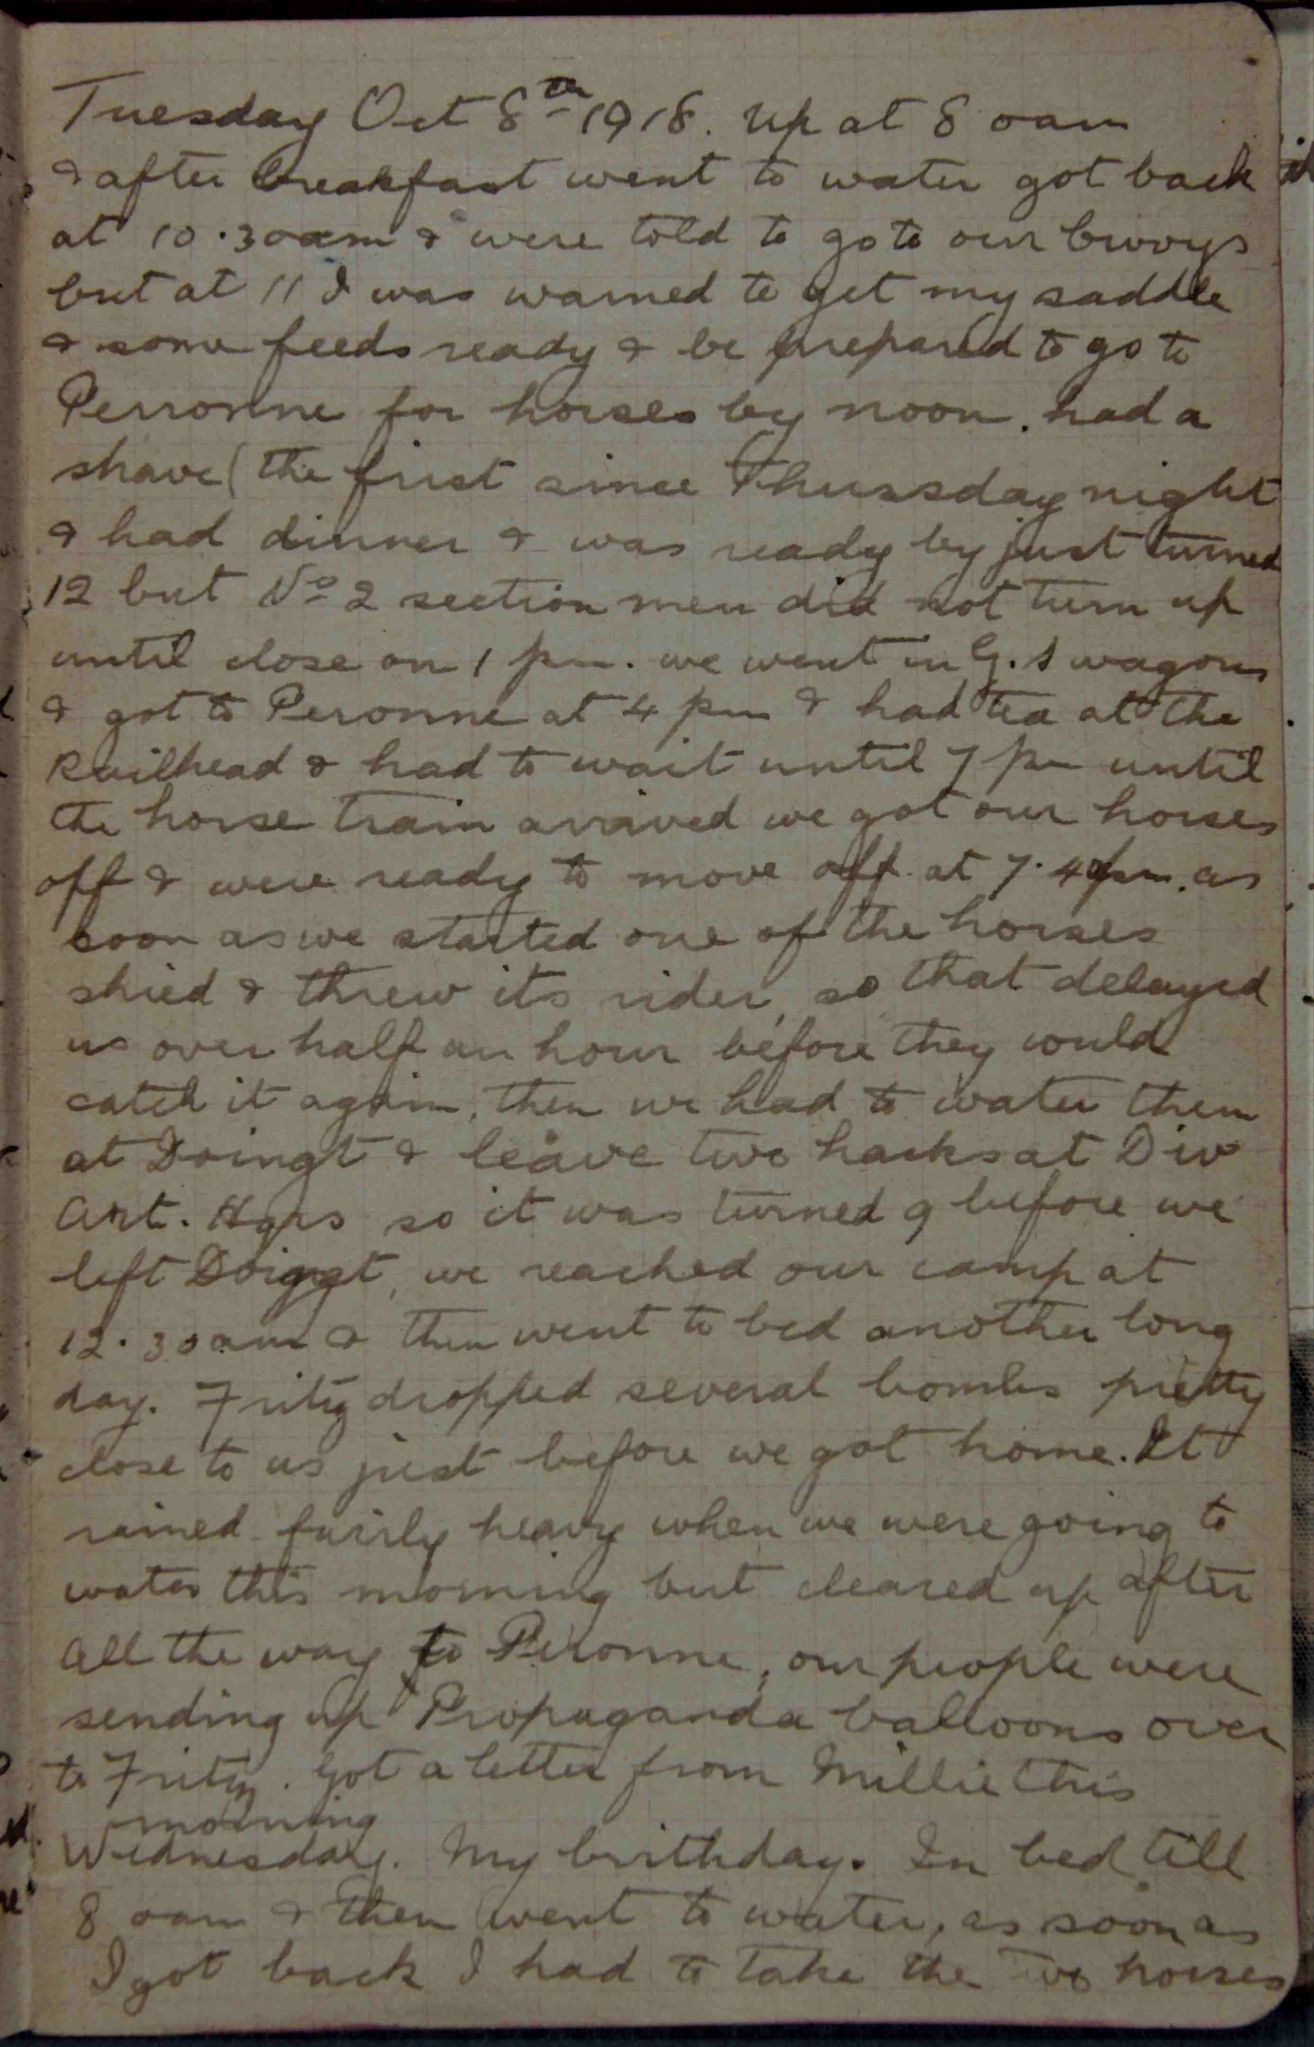 Tuesday Oct 8th 1918. Up at 8 oam
& after breakfast went to water got back
at 10.30am & were told to go to our bivvys
but at 11 I was warned to get my saddle
& some feeds ready & be prepared to go to
Perronne for horses by noon. had a
shave (the first since Thursday night
& had dinner & was ready by just turned
12 but No 2 section men did not turn up
until close on 1 pm. we went in G.S wagons
& got to Peronne at 4 pm & had tea at the
Railhead & had to wait until 7 pm until
the horse train arrived we got our horses
off & were ready to move off at 7.40pm. as
soon as we started one of the horses
shied & threw its rider, so that delayed
us over half an hour before they could
catch it again, then we had to water them
at Doingt & leave two hacks at Div
Art. Hqrs so it was turned 9 before we
left Doingt, we reached our camp at
12.30am & then went to bed another long
day. Fritz dropped several bombs pretty
close to us just before we got home. It
rained fairly heavy when we were going to
water this morning but cleared up after
all the way to Peronne, our people were
sending up Propaganda balloons over
to Fritz. Got a letter from Millie this
morning
Wednesday. My birthday. In bed till
8 oam & then went to water, as soon as
I got back I had to take the two horses